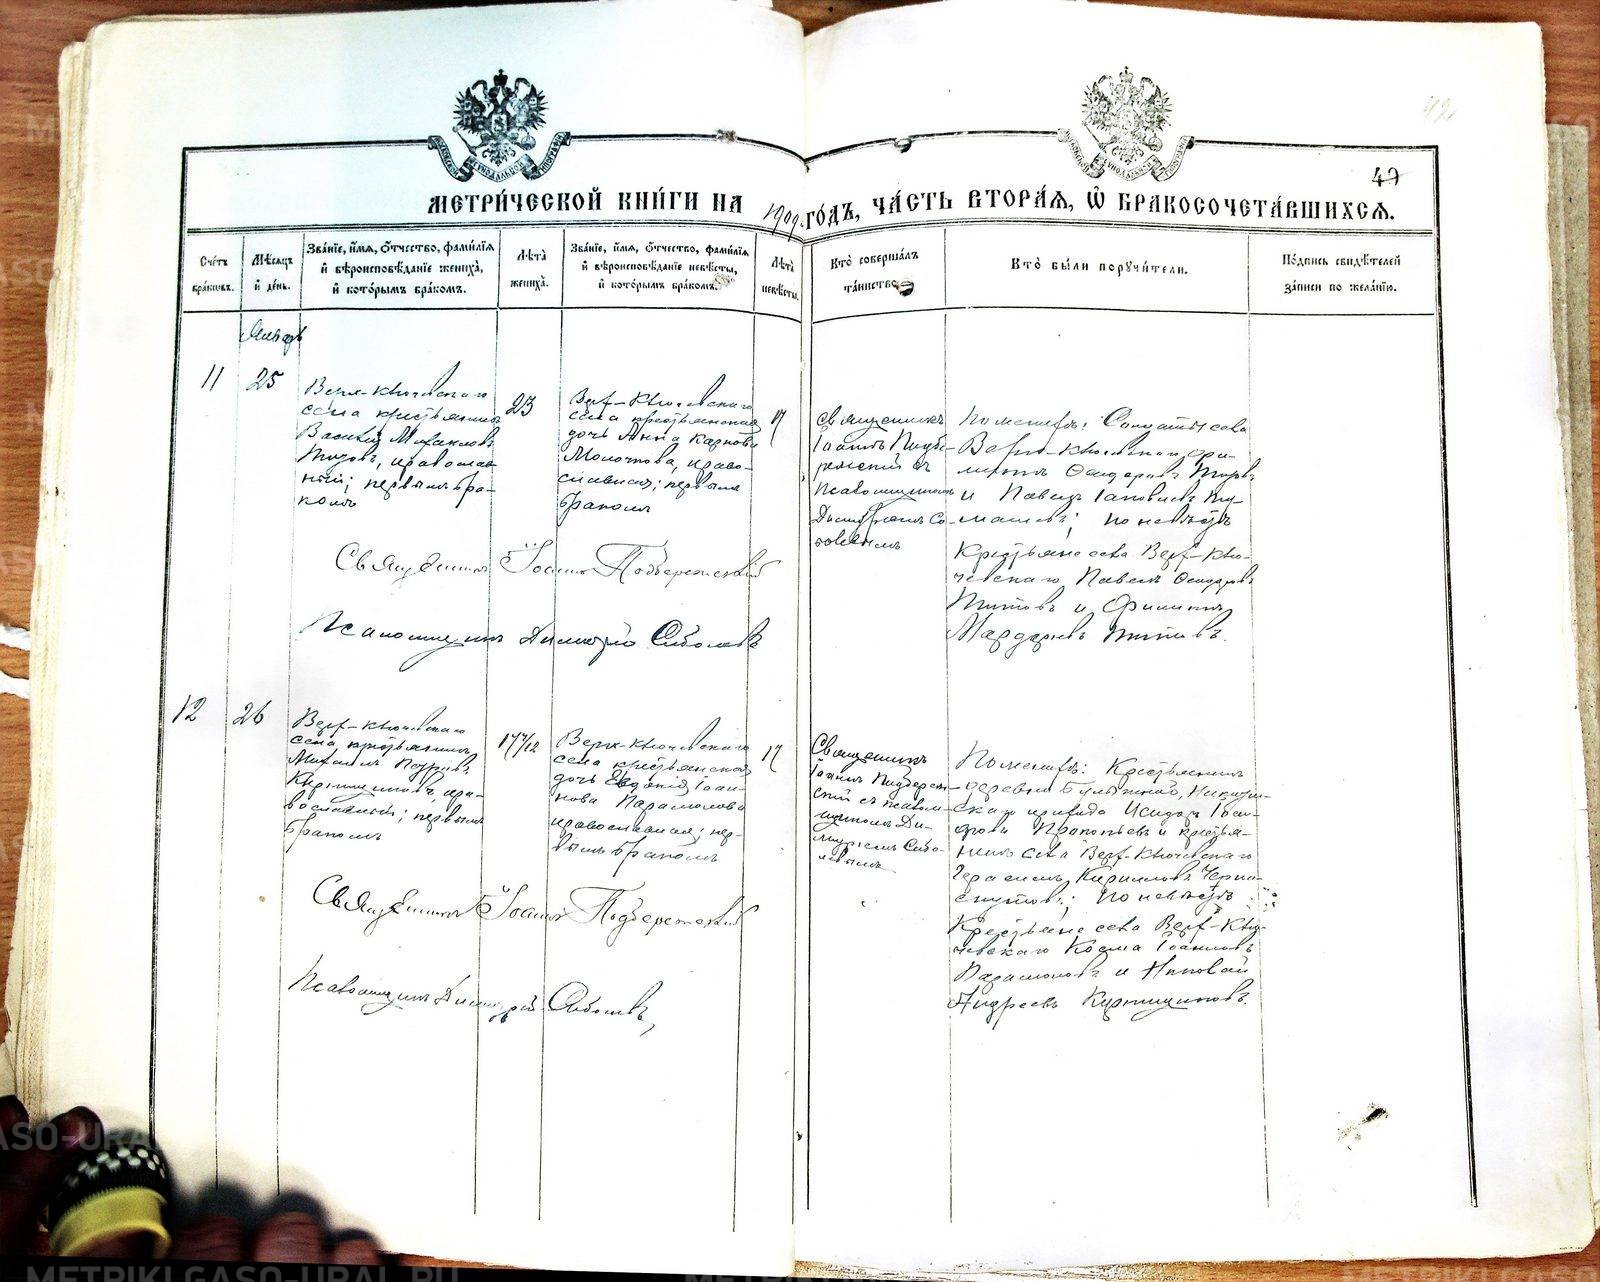 42
47
МЕТРИ́ЧЕСКОЙ КНИ́ГИ НА 1909 ГО́ДЪ, ЧА́СТЬ ВТОРА́Я, Ѡ БРАКОСОЧЕТА́ВШИХСЯ.
Сче́тъ бра́ковъ.
Мѣ́сяцъ и́ де́нь.
Зва́нїе, и́мя, о́тчество, фами́лїя и́ вѣроисповѣ́данїе жениха̀, и́ кото́рымъ бра́комъ.
Лѣ́та жениха̀.
Зва́нїе, и́мя, о́тчество, фами́лїя и́ вѣроисповѣ́данїе невѣ́сты, и́ кото́рымъ бра́комъ.
Лѣ́та невѣ́сты.
Кто̀ соверша́лъ та́инство.
Кто̀ бы́ли поручи́тели.
По́дпись свидѣ́телей за́писи по жела́нїю.
Январь
11
25
Верх-Ключевскаго
села крестьянинъ
Василій Михаиловъ
Титовъ, православ
ный; первымъ бра-
комъ
23
Верх-Ключевскаго
села крестьянская
дочь Анна Карпова
Молочкова, право-
славная; первымъ
бракомъ
17
Священникъ
Іоаннъ Подбе-
режскій съ
псаломщикомъ
Димитріемъ Со-
болевымъ
По женихѣ: села
Верх-Ключевскаго, Фи-
и Павелъ
по невѣстѣ
Крестьяне села Верх-Клю-
чевскаго Павелъ Феодоровъ
Титовъ и Филиппъ
Мардаріевъ Титовъ.
Священникъ Іоаннъ Подбережскій
Псаломщикъ Димитрій Соболевъ
12
26
Верх-Ключевскаго
села крестьянинъ
Михаилъ
Кирпищиковъ, пра-
вославный; первымъ
бракомъ
17 7/12
Верх-Ключевскаго
села крестьянская
дочь Евдокія Іоан-
нова Парамонова
православная; пер-
вымъ бракомъ
17
Священникъ
Іоаннъ Подбереж-
скій съ псалом-
щикомъ Ди-
митріемъ Собо-
левымъ
По женихѣ: Крестьянинъ
деревни
скаго прихода Исидоръ
Прокопьевъ и крестья-
нинъ села Верх-Ключевскаго
Герасимъ Кирилловъ Черно-
скутовъ; по невѣстѣ
Крестьяне села Верх-Клю-
чевскаго Косма Іоанновъ
Парамоновъ и Николай
Андреевъ Кирпищиковъ.
Священникъ Іоаннъ Подбережскій
Псаломщикъ Димитрій Соболевъ
METRIKI.GASO-URAL.RU